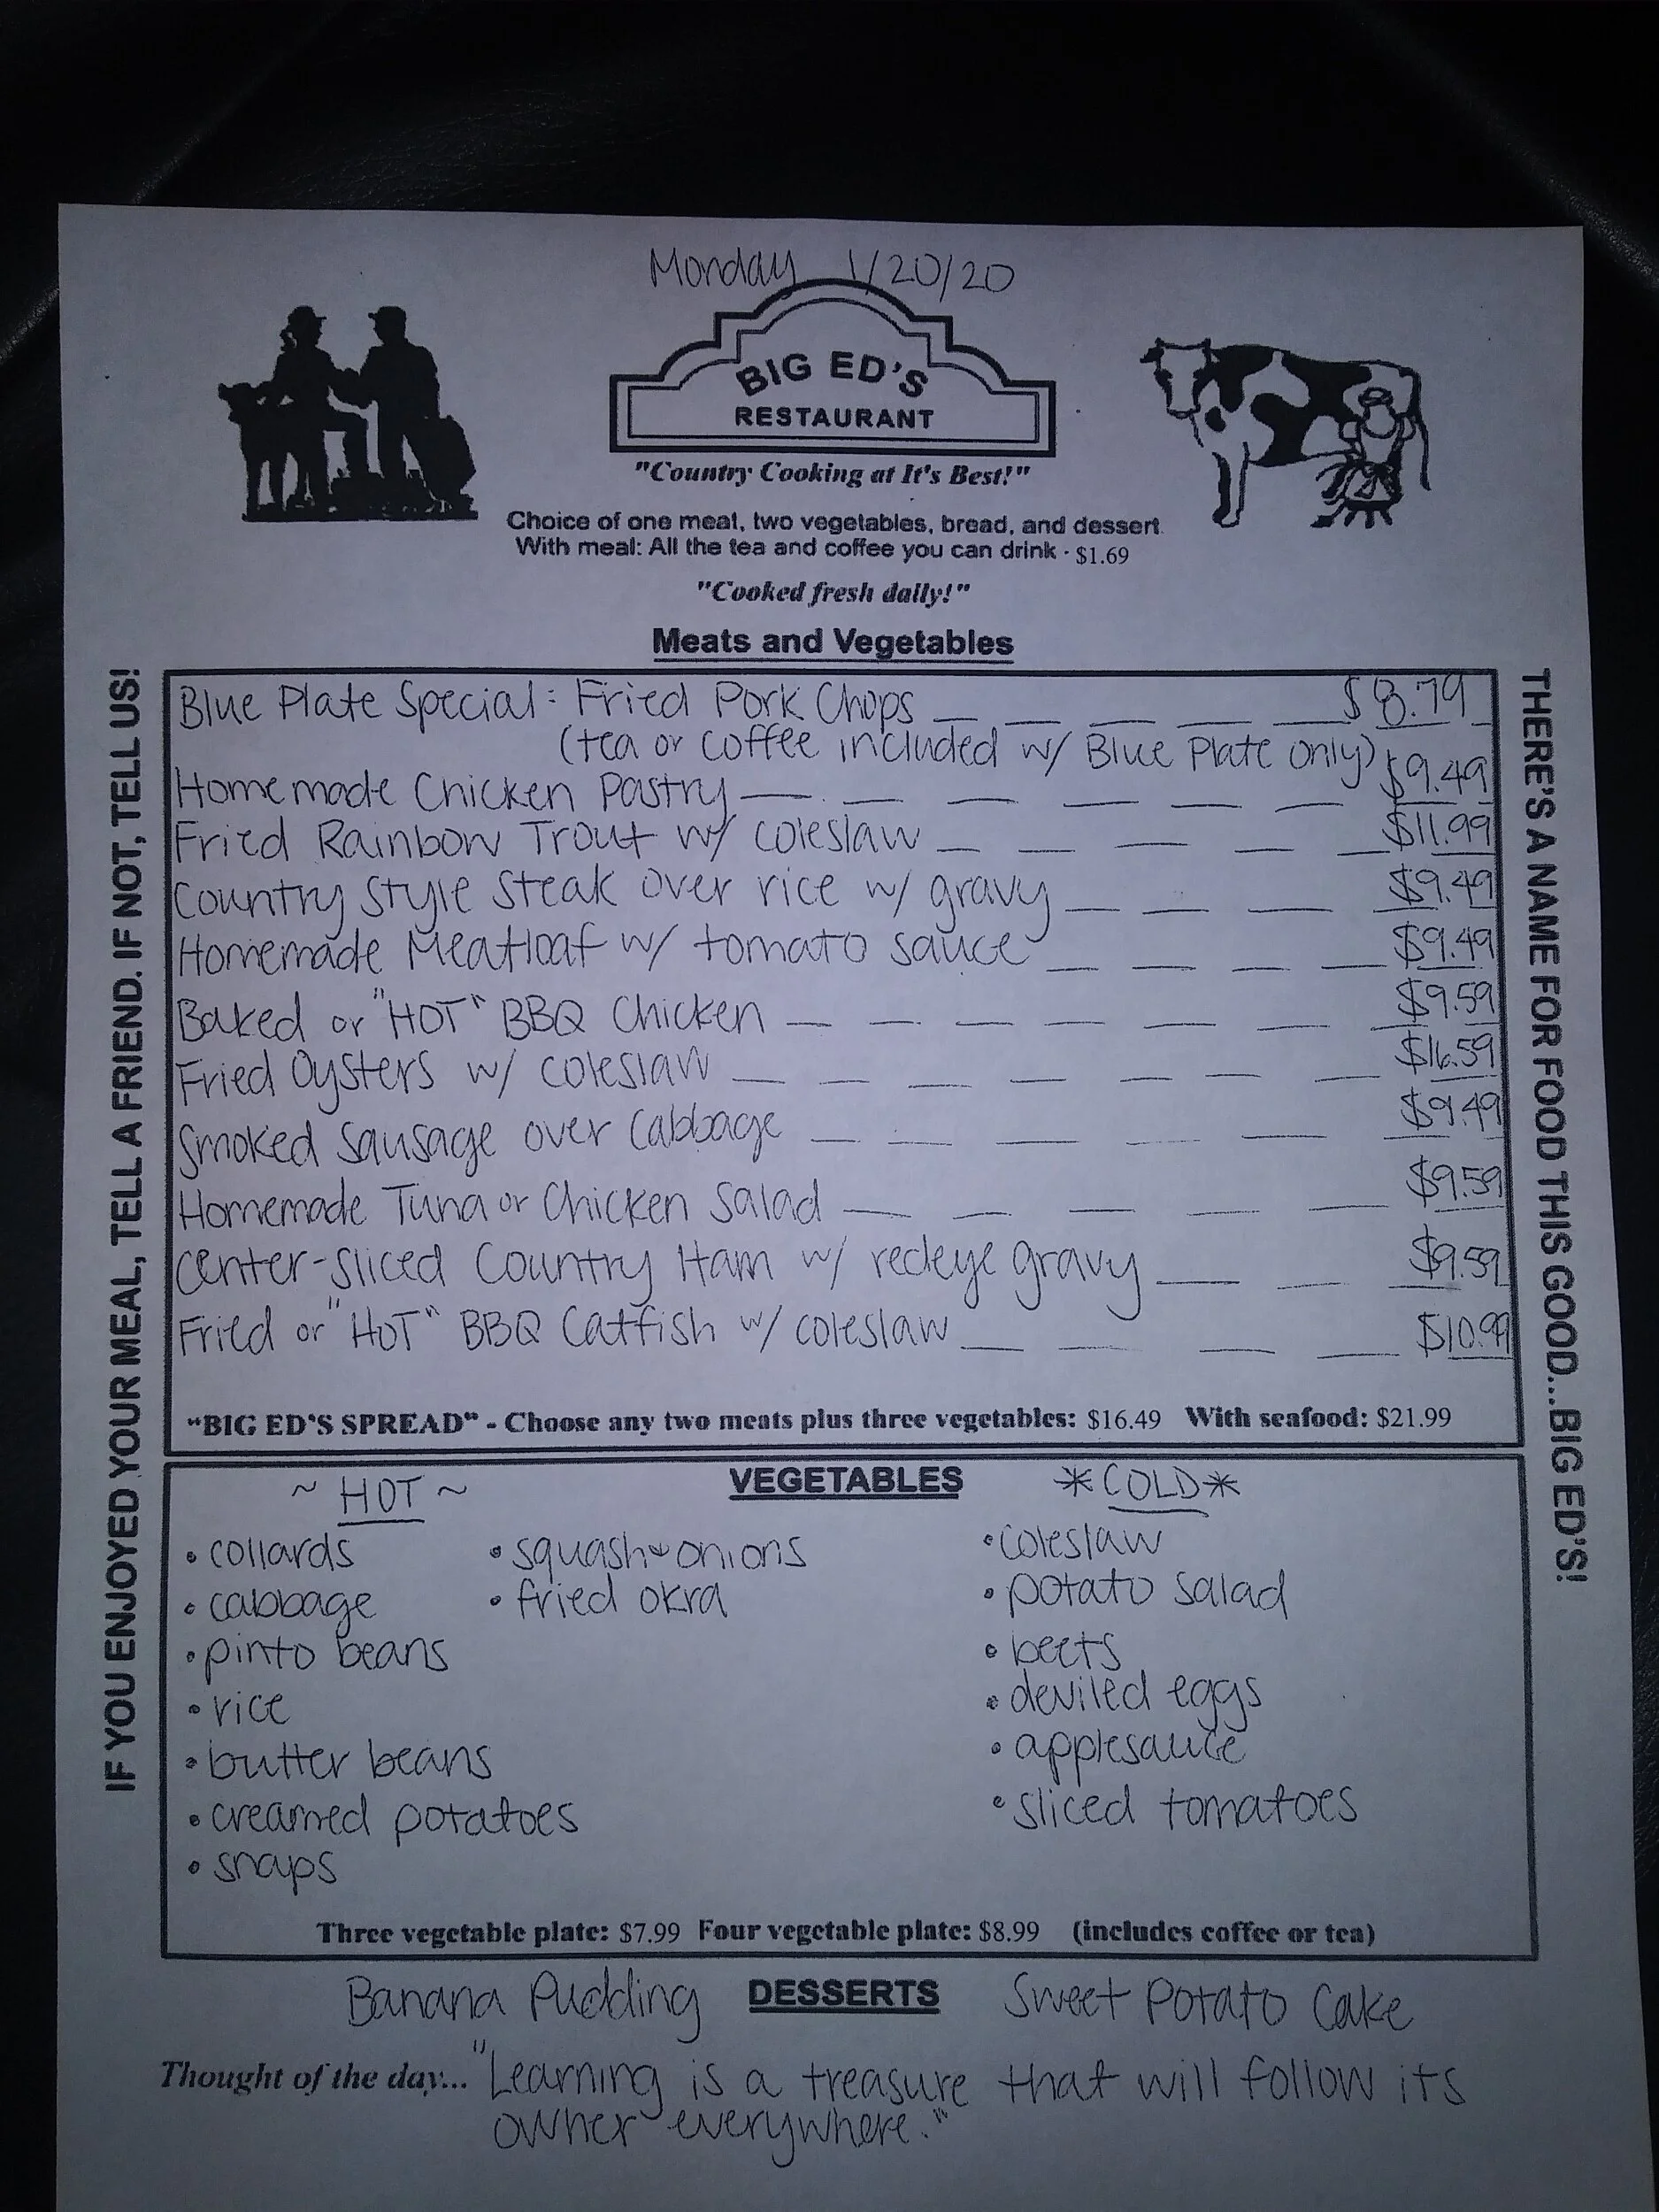 Monday 1/20/20
BIG ED'S
RESTAURANT
"Country Cooking at It's Best!"
Choice of one meat, two vegetables, bread, and dessert.
With meal: All the tea and coffee you can drink - $1.69
"Cooked fresh daily!"
Meats and Vegetables
Blue Plate Special: Fried Pork Chops _ _ _ _ _ $8.79
(tea or coffee included w/ Blue Plate only)
Homemade Chicken Pastry _ _ _ _ _ _ $9.49
Fried Rainbow Trout w/ coleslaw _ _ _ _ _ $11.99
Country Style Steak over rice w/ gravy _ _ _ _ $9.49
Homemade Meatloaf w/ tomato sauce _ _ _ _ $9.49
Baked or "HOT" BBQ Chicken _ _ _ _ _ _ _ $9.59
Fried Oysters w/ coleslaw _ _ _ _ _ _ _ $16.59
Smoked Sausage over Cabbage _ _ _ _ _ _ $9.49
Homemade Tuna or Chicken Salad _ _ _ _ _ $9.59
Center-Sliced Country Ham w/ redeye gravy _ _ _ $9.59
Fried or "HOT" BBQ Catfish w/ coleslaw _ _ _ _ $10.99
"BIG ED'S SPREAD" - Choose any two meats plus three vegetables: $16.49 With seafood: $21.99
VEGETABLES
~ HOT ~
• collards
• cabbage
• pinto beans
• rice
• butter beans
• creamed potatoes
• snaps
• squash & onions
• fried okra
*COLD*
• coleslaw
• potato salad
• beets
• deviled eggs
• applesauce
• sliced tomatoes
Three vegetable plate: $7.99 Four vegetable plate: $8.99 (includes coffee or tea)
Banana Pudding DESSERTS Sweet Potato Cake
Thought of the day... "Learning is a treasure that will follow its
owner everywhere."
IF YOU ENJOYED YOUR MEAL, TELL A FRIEND. IF NOT, TELL US!
THERE'S A NAME FOR FOOD THIS GOOD...BIG ED'S!